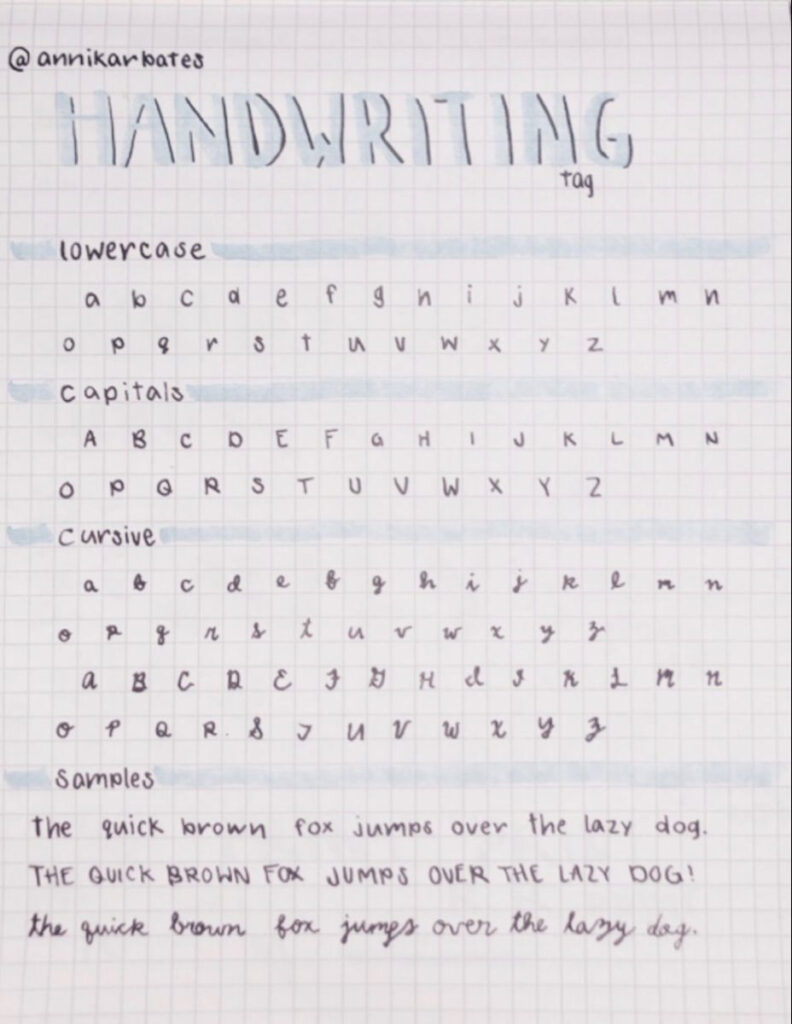 @annikarbates
HANDWRITING
tag
lowercase
a b c d e f g h i j k l m n
o p q r s t u v w x y z
capitals
A B C D E F G H I J K L M N
O P Q R S T U V W X Y Z
cursive
a b c d e f g h i j k l m n
o p q r s t u v w x y z
A B C D E F G H I J K L M N
O P Q R S T U V W X Y Z
samples
the quick brown fox jumps over the lazy dog.
THE QUICK BROWN FOX JUMPS OVER THE LAZY DOG!
the quick brown fox jumps over the lazy dog.